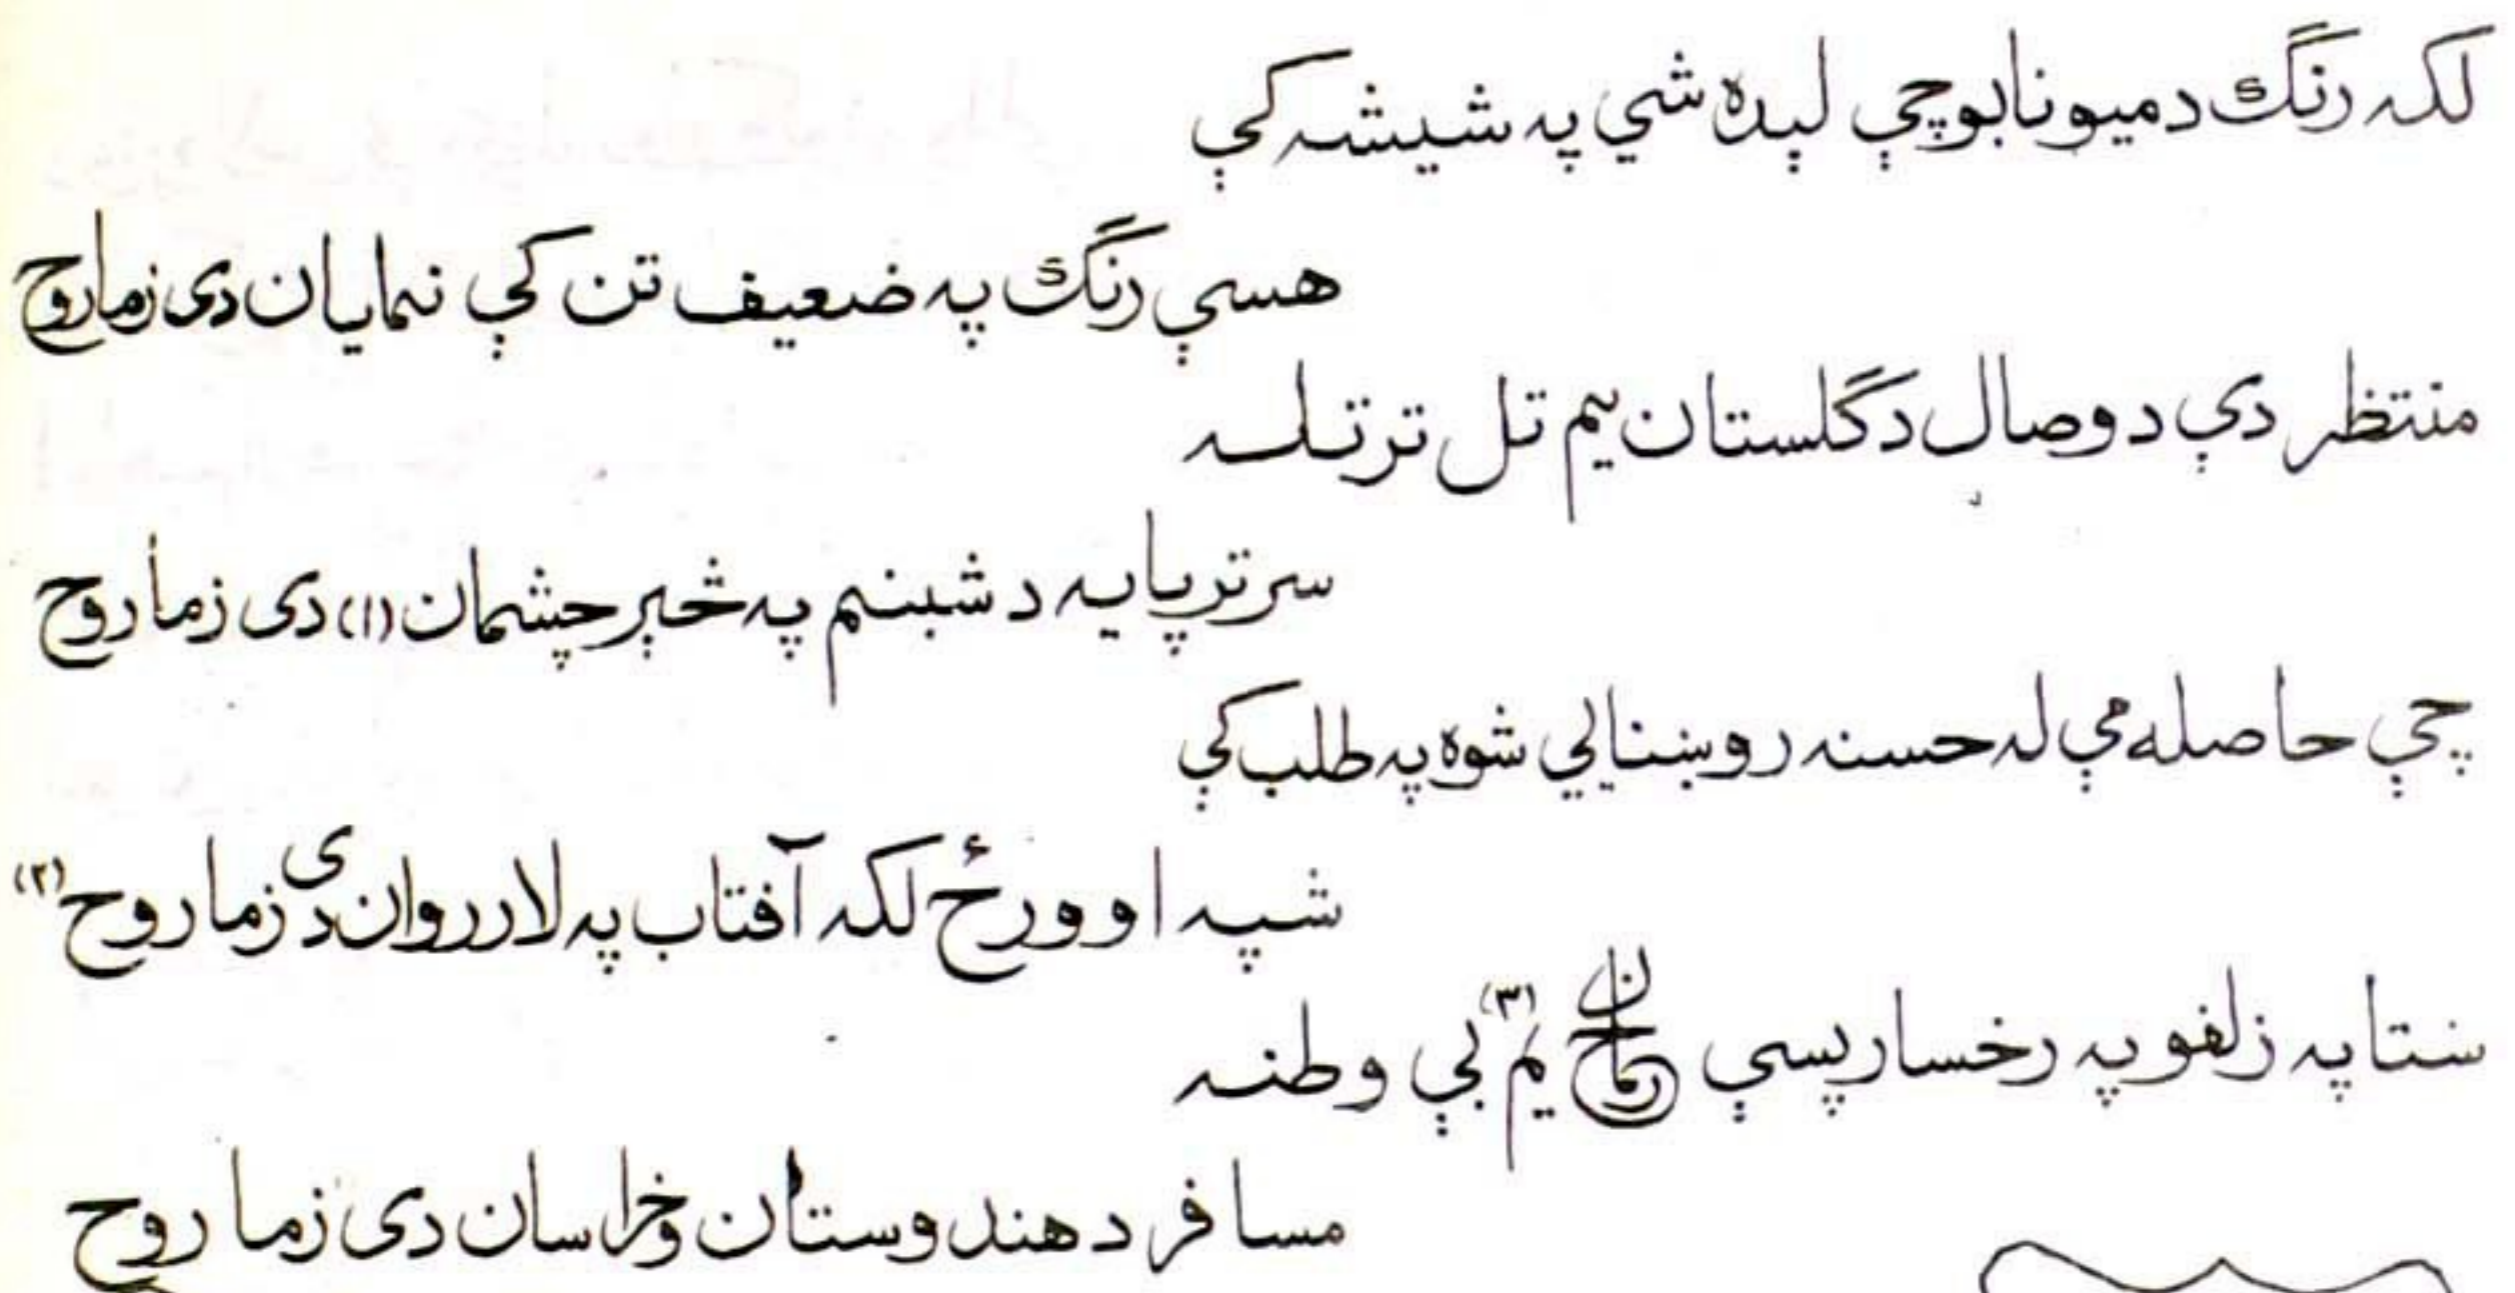 لکه رنګ د میو نابو چې لېده شي په شیشه کې
هسې رنګ په ضعیف تن کې نمایان دی زما روح
منتظر دې د وصال د گلستان یم تل تر تله
سر تر پایه د شبنم په څېر چشمان (۱) دی زما روح
چې حاصله مې له حسنه روښنایي شوه په طلب کې
شپه او ورځ لکه آفتاب په لار روان دی زما روح (۲)
ستا په زلفو په رخسار پسې یم (۳) بې وطنه
مسافر د هندوستان و خراسان دی زما روح